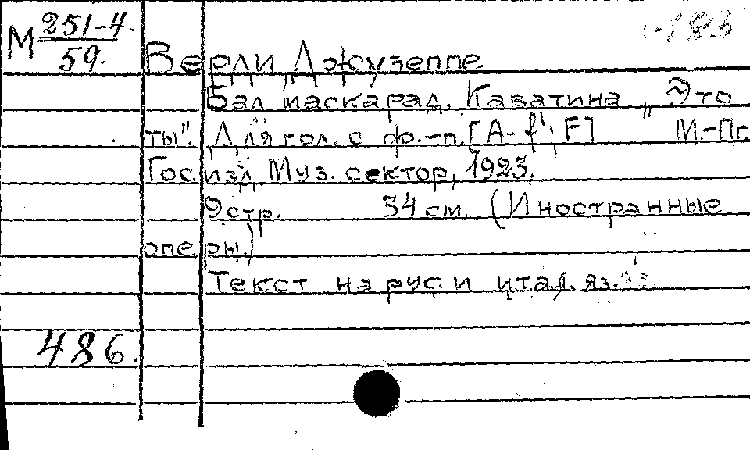 М 251-4.
59.
Верди Джузеппе
Бал маскарад. Каватина „Это
ты". Для гол. с ф.-п. [A-f'; F] М.-Пг.
Гос. изд. Муз. сектор, 1923.
9 стр. 34 см. (Иностранные
оперы.)
Текст на рус. и итал. яз.
486.